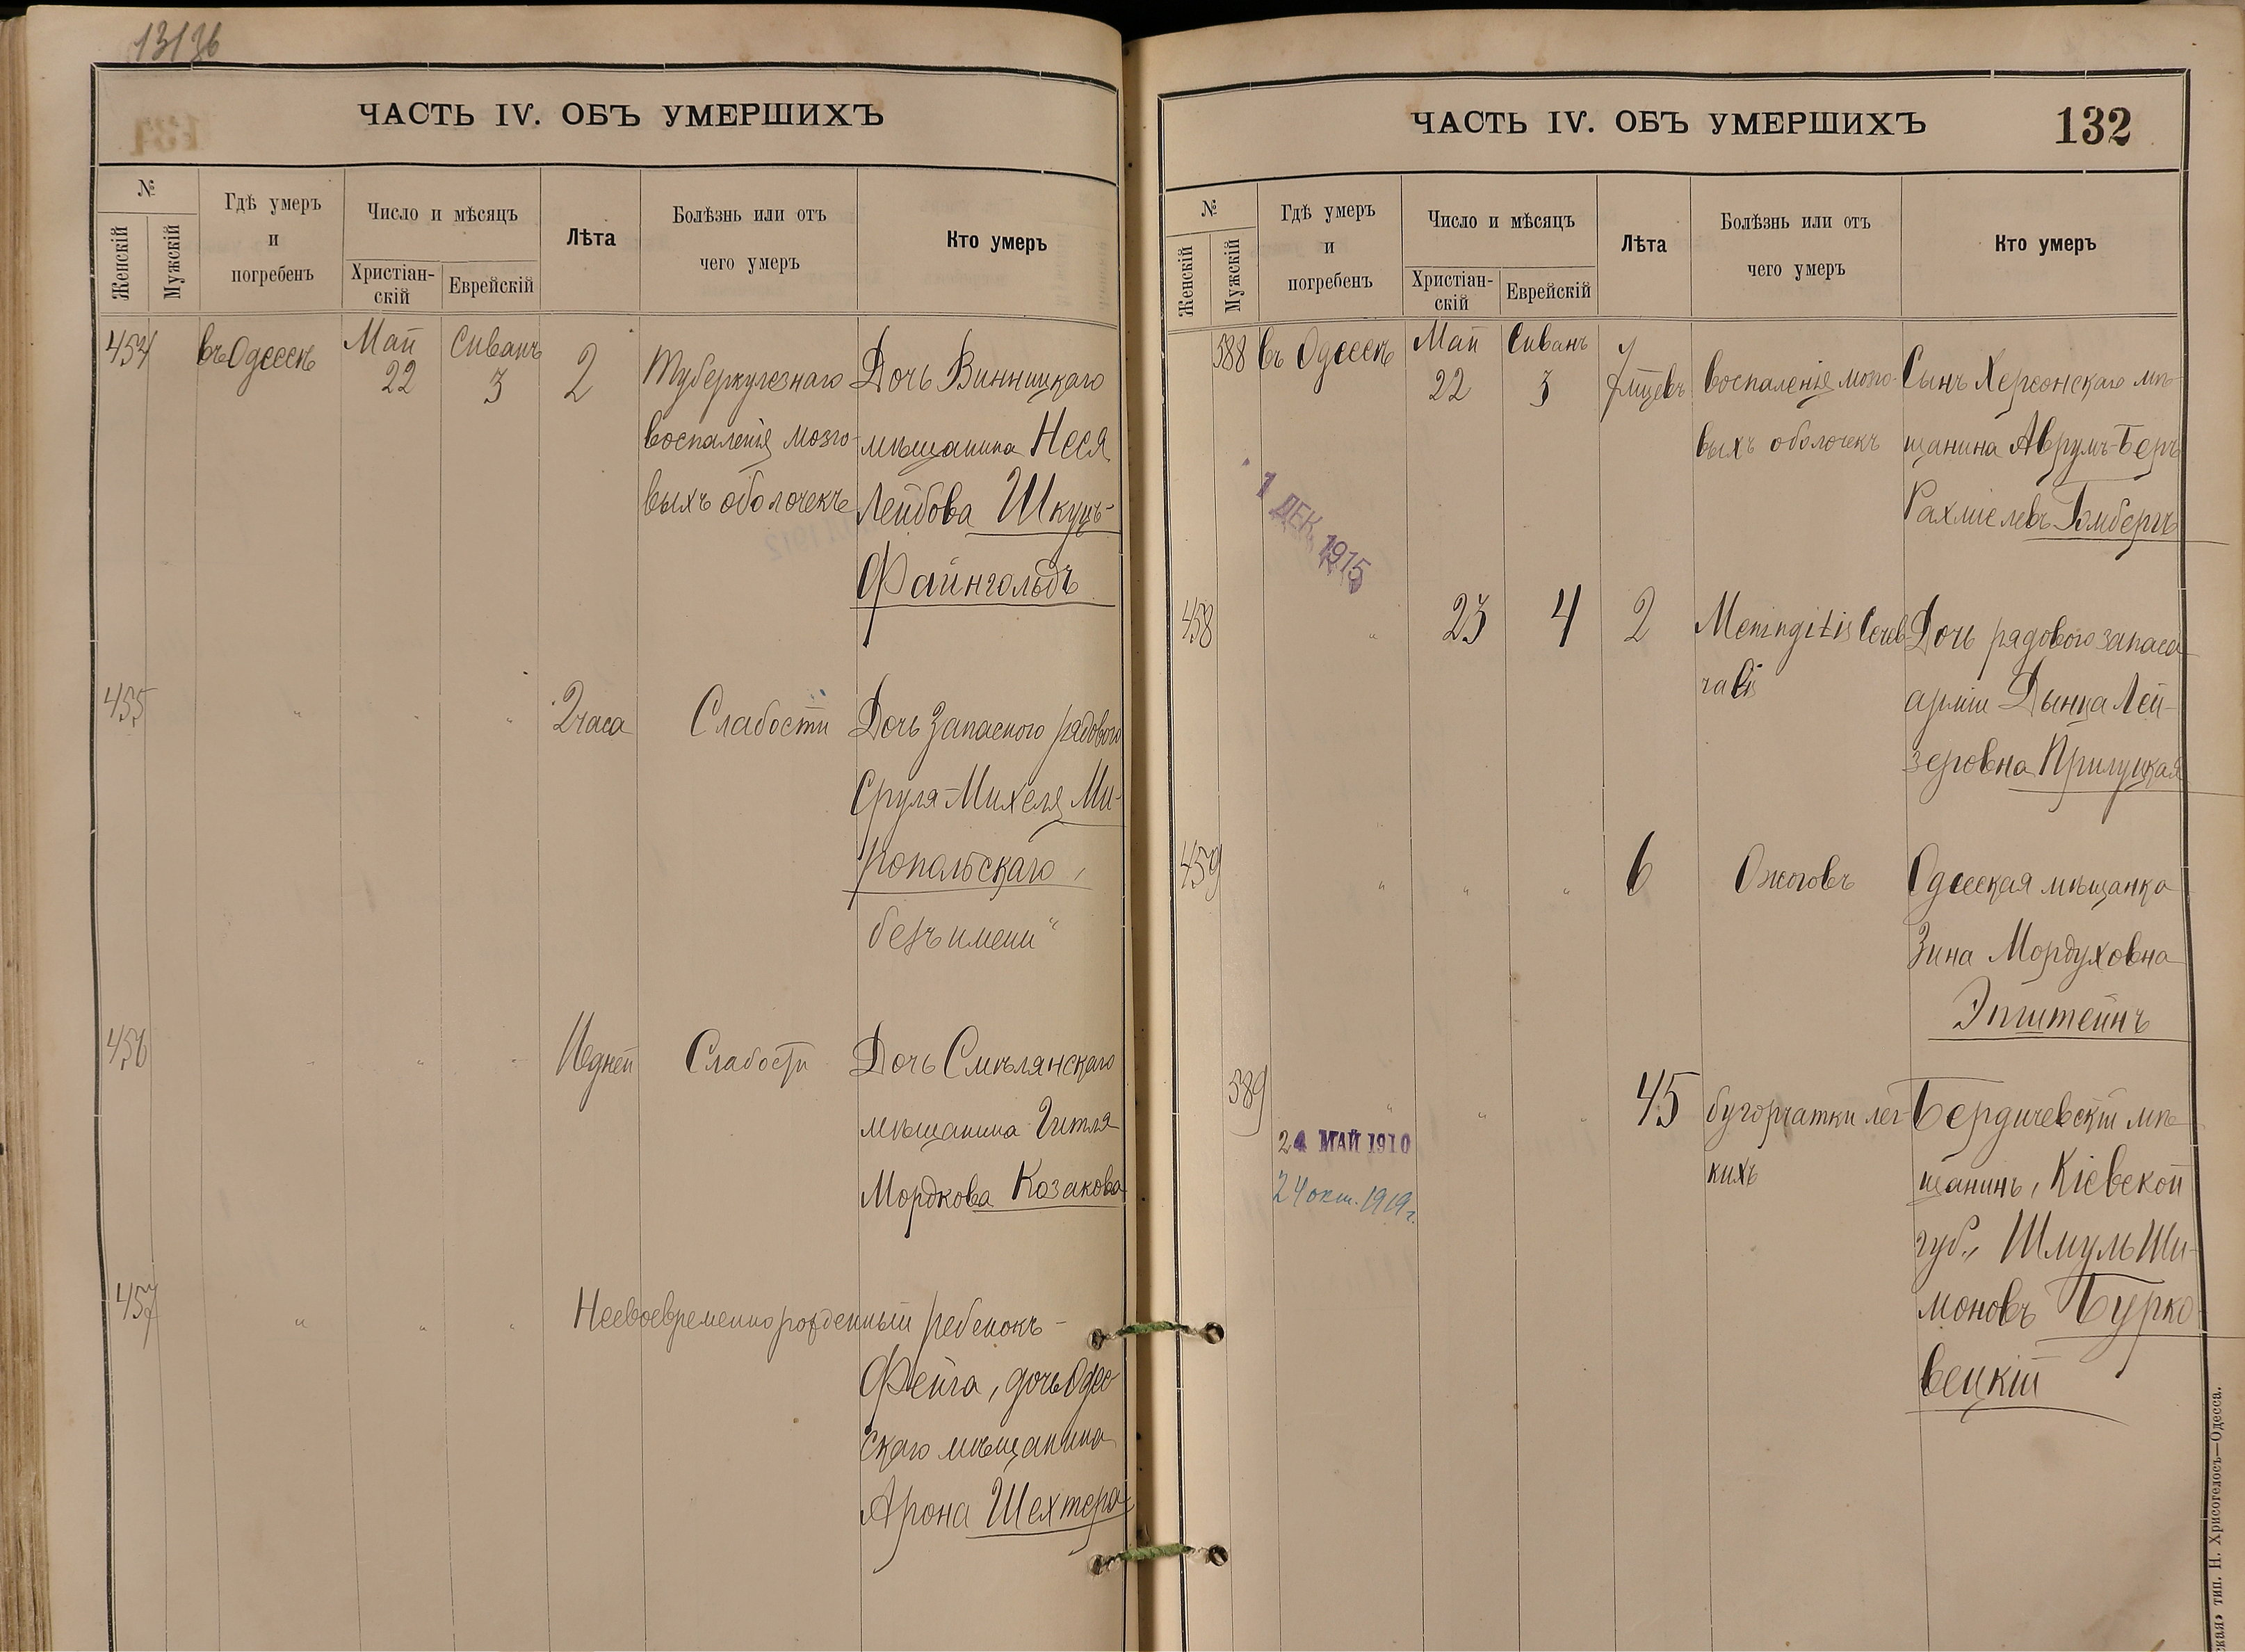 13136
ЧАСТЬ IV. ОБЪ УМЕРШИХЪ
№
Женскій
Мужскій
Гдѣ умеръ
и
погребенъ
Число и мѣсяцъ
Христіан-
скій
Еврейскій
Лѣта
Болѣзнь или отъ
чего умеръ
Кто умеръ
454 въ Одессѣ Май 22 Сиванъ 3 2
Туберкулезнаго
воспаленія мозго-
выхъ оболочекъ
Дочь Винницкаго
мѣщанина Неся
Лейбова Шкуцъ-
Файнгольдъ
455 " " " 2 часа Слабости
Дочь Запасного рядового
Сруля-Михеля Ми-
ропольскаго,
безъ имени"
456 " " " 16 дней Слабости
Дочь Смѣлянскаго
мѣщанина Гитля
Мордкова Козакова
457 " " " Несвоевременно рожденный ребенокъ -
Фейга, дочь Одес
скаго мѣщанина
Арона Шехтера
ЧАСТЬ IV. ОБЪ УМЕРШИХЪ
132
№
Женскій
Мужскій
Гдѣ умеръ
и
погребенъ
Число и мѣсяцъ
Христіан-
скій
Еврейскій
Лѣта
Болѣзнь или отъ
чего умеръ
Кто умеръ
588 въ Одессѣ Май 22 Сиванъ 3
мѣсцевъ
воспаленія мозго-
выхъ оболочекъ
Сынъ Херсонскаго мѣ-
щанина Аврумъ-Беръ
Рахмiелевъ Гомбергъ
1 ДЕК. 1915
458 " 23 4 2
Meningitis Cereb
ralis
Дочь рядового запаса
арміи Дынца Лей-
зеровна Прилуцкая
459 " " " 6 Ожоговъ
Одесская мѣщанка
Зина Мордуховна
Эпштейнъ
589 " " " 45
бугорчатки лег
кихъ
Бердичевскій мѣ
щанинъ, Кіевской
губ., Шмуль Ши-
моновъ Бурко
вецкій
24 МАЙ 1910
24 окт. 1919 г.
тип. Н. Хрисогелосъ—Одесса.